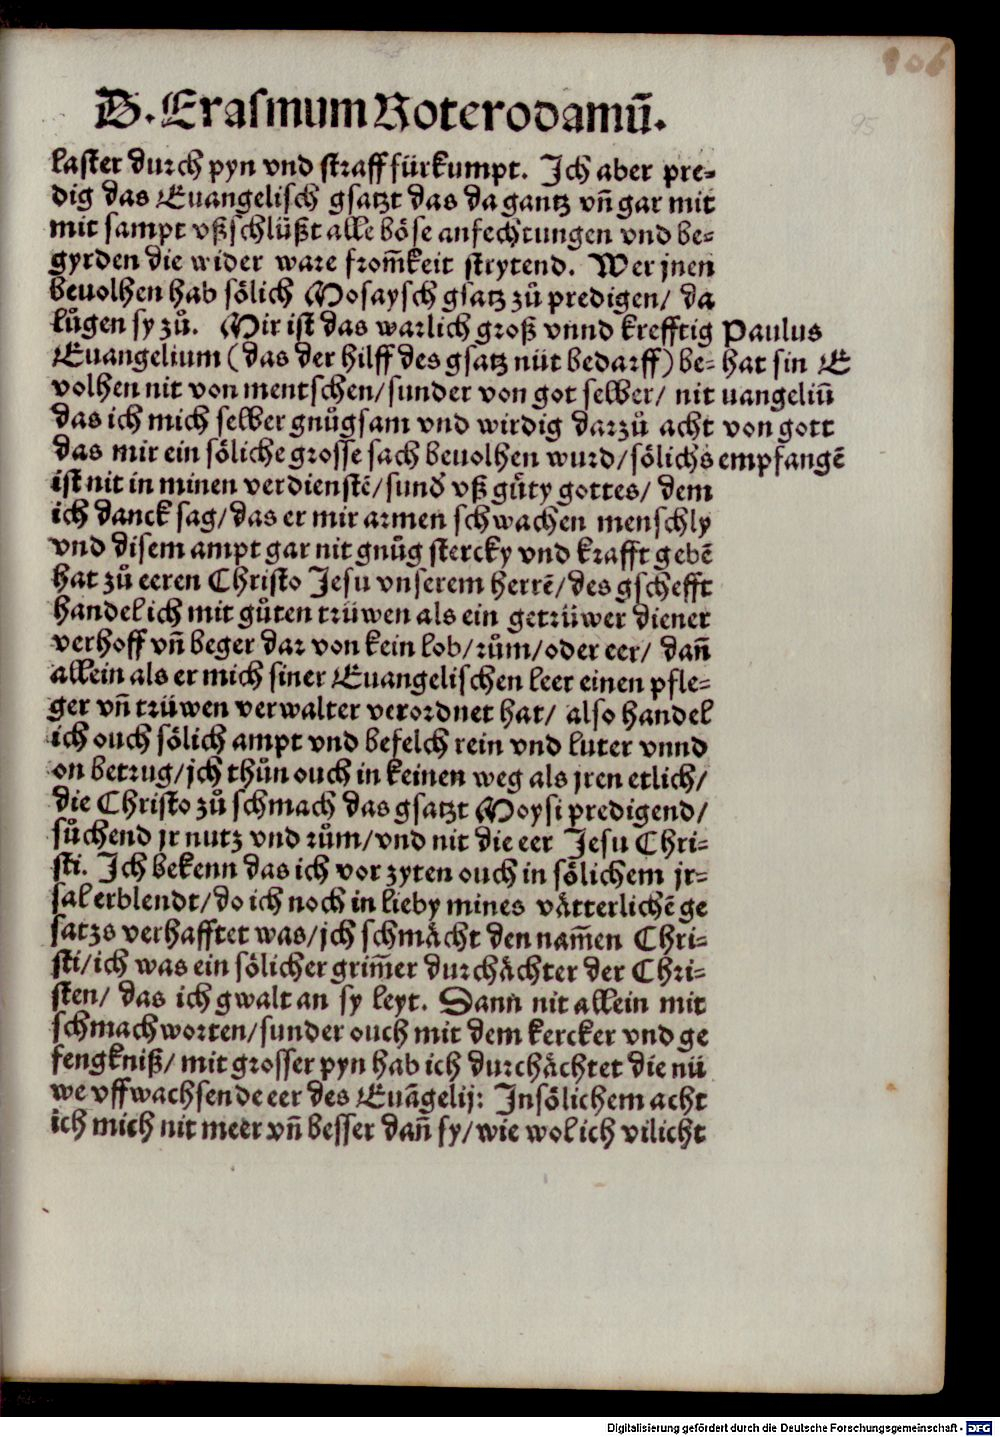 D. Erasmum Roterodamū.
106
95
laster durch pyn vnd straff fürkumpt. Ich aber pre-
dig das Euangelisch gsatzt das da gantz vn̄ gar mit
mit sampt vßschlüßt alle böse anfechtungen vnd be-
gyrden die wider ware from̄keit strytend. Wer jnen
beuolhen hab sölich Mosaysch gsatz zů predigen/ da
lůgen sy zů. Mir ist das warlich groß vnnd krefftig
Euangelium (das der hilff des gsatz nüt bedarff) be-
volhen nit von mentschen/ sunder von got selber/ nit
das ich mich selber gnůgsam vnd wirdig darzů acht
das mir ein söliche grosse sach beuolhen wurd/ sölichs
ist nit in minen verdienstē/ sund̕ vß gůty gottes/ dem
ich danck sag/ das er mir armen schwachen menschly
vnd disem ampt gar nit gnůg stercky vnd krafft gebē
hat zů eeren Christo Jesu vnserem herrē/ des gschefft
handel ich mit gůten trüwen als ein getrüwer diener
verhoff vn̄ beger dar von kein lob/ rům/ oder eer/ dan̄
allein als er mich siner Euangelischen leer einen pfle-
ger vn̄ trüwen verwalter verordnet hat/ also handel
ich ouch sölich ampt vnd befelch rein vnd luter vnnd
on betrug/ jch thůn ouch in keinen weg als jren etlich/
die Christo zů schmach das gsatzt Moysi predigend/
sůchend jr nutz vnd rům/ vnd nit die eer Jesu Chri-
sti. Ich bekenn das ich vor zyten ouch in sölichem jr-
sal erblendt/ do ich noch in lieby mines vätterlichē ge
satzs verhafftet was/ jch schmächt den nam̄en Chri-
sti/ ich was ein sölicher grim̄er durchächter der Chri-
sten/ das ich gwalt an sy leyt. Dann nit allein mit
schmachworten/ sunder ouch mit dem kercker vnd ge
fengkniß/ mit grosser pyn hab ich durchächtet die nü
we vffwachsende eer des Euāgelij: In sölichem acht
ich mich nit meer vn̄ besser dan̄ sy/ wie wol ich vilicht
Paulus
hat sin E
uangeliū
von gott
empfangē
Digitalisierung gefördert durch die Deutsche Forschungsgemeinschaft - DFG